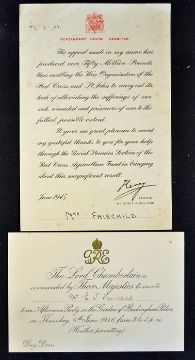 The appeal made in my name has
produced over Fifty Million Pounds
thus enabling the War Organisation of the
Red Cross and St. John to carry out its
task of alleviating the sufferings of our
sick, wounded and prisoners of war to the
fullest possible extent.
It gives me great pleasure to send
my grateful thanks to you for your help
through the Rural Pennies Section of the
Red Cross Agriculture Fund in bringing
about this magnificent result.
June 1945
Henry
FAIRCHILD
The Lord Chamberlain is
commanded by Their Majesties to invite
to an Afternoon Party in the Garden of Buckingham Palace
on Thursday, June, from 3 to 5
(Weather permitting)
Day Dress